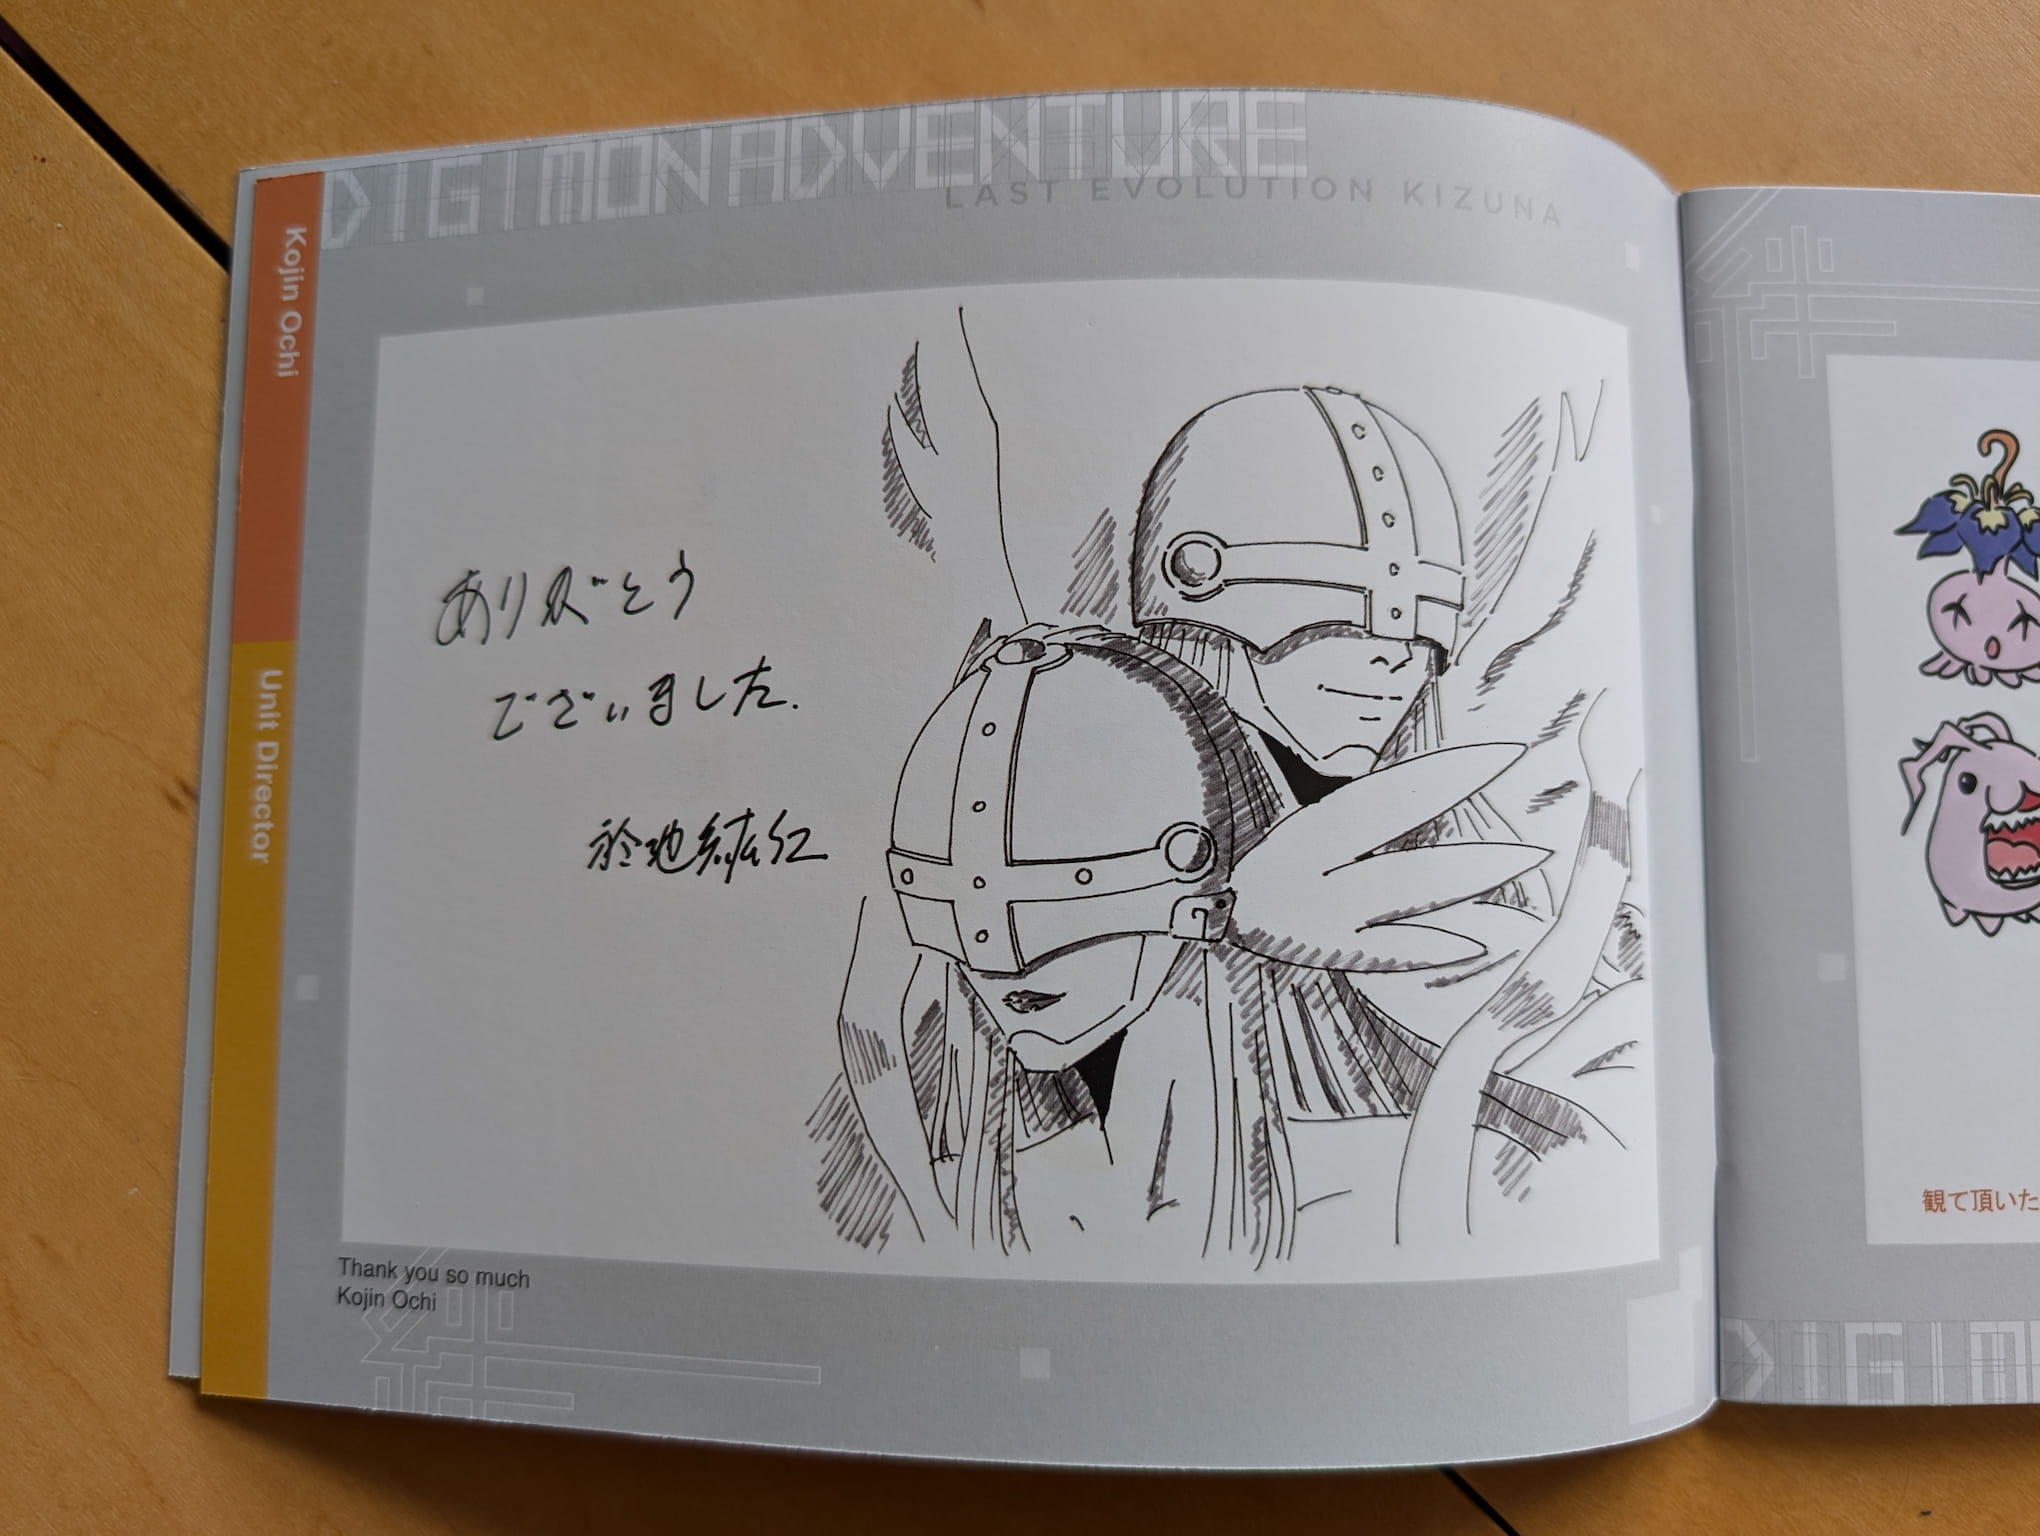 DIGIMON ADVENTURE
LAST EVOLUTION KIZUNA
Kojin Ochi
Unit Director
ありがとう
ございました.
於地紘仁
Thank you so much
Kojin Ochi
観て頂いた
DIGIM